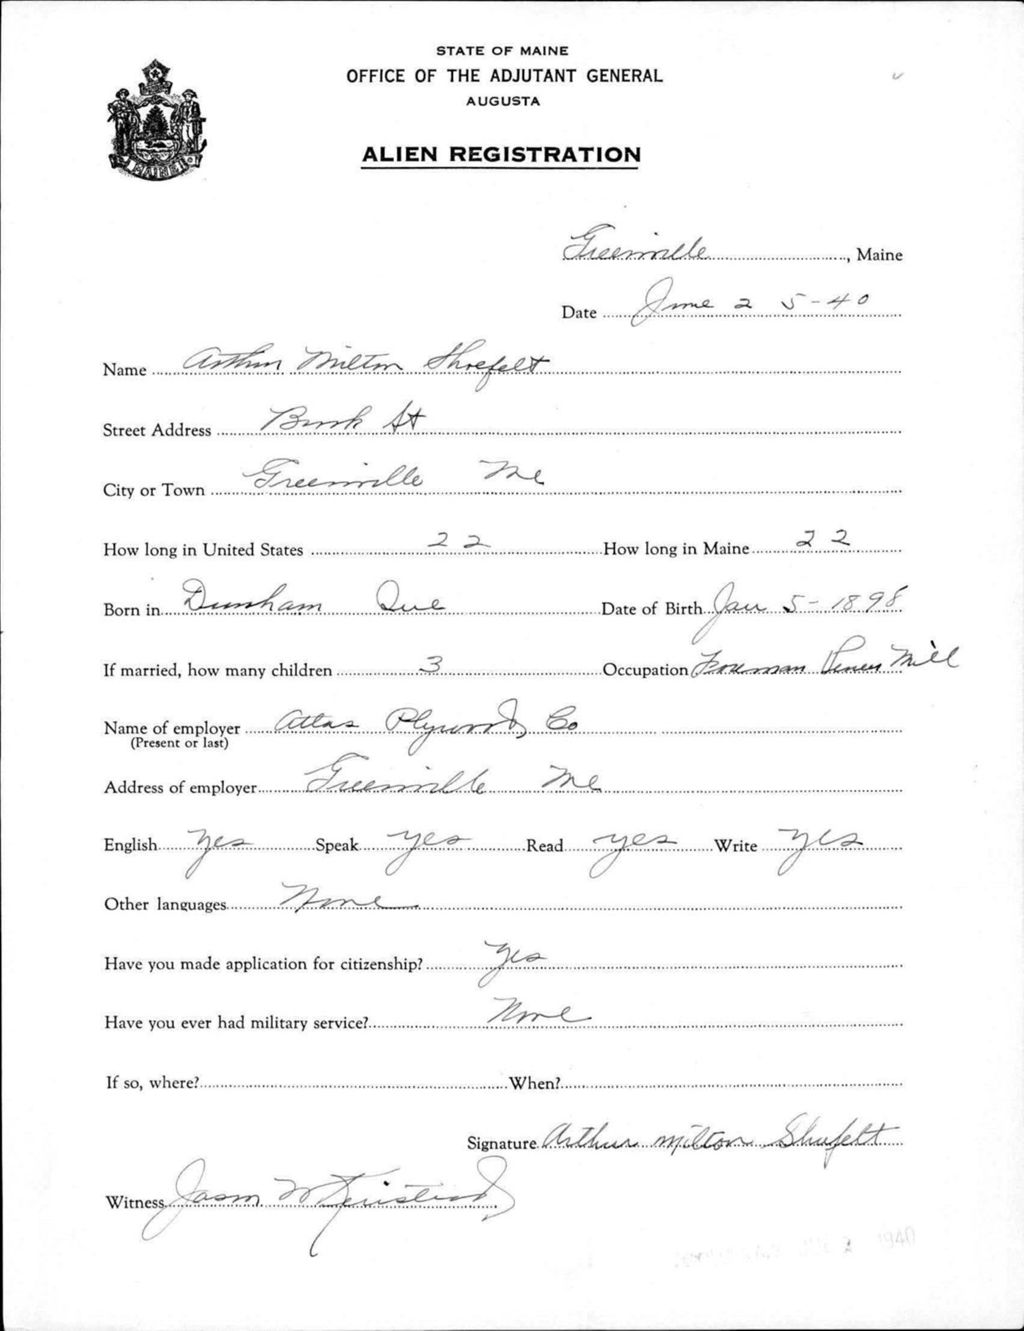 STATE OF MAINE
OFFICE OF THE ADJUTANT GENERAL
AUGUSTA
ALIEN REGISTRATION
Greenville, Maine
Date June 25-40
Name Arthur Milton Shoefelt
Street Address St
City or Town Greenville Me
How long in United States 22 How long in Maine 22
Born in Dunham Que Date of Birth Jan 5-1898
If married, how many children 3 Occupation Foreman Veneer Mill
Name of employer Atlas Plywood Co
(Present or last)
Address of employer Greenville Me
English Yes Speak yes Read yes Write yes
Other languages None
Have you made application for citizenship? Yes
Have you ever had military service? None
If so, where? When?
Signature Arthur Milton Shufelt
Witness